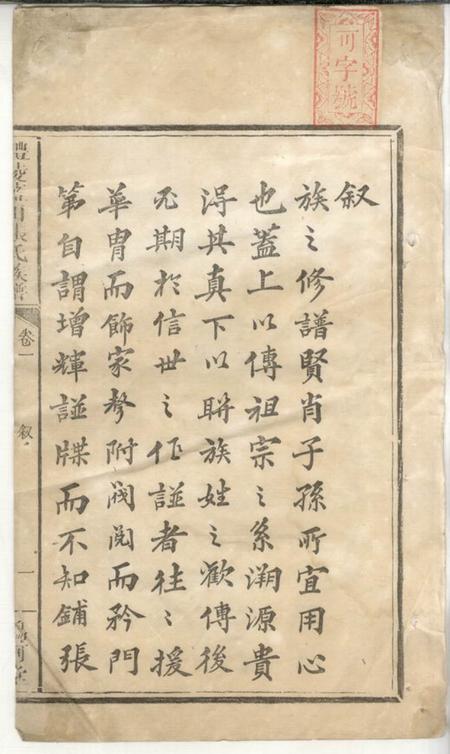 可字號
叙
族之修譜賢肖子孫所宜用心
也蓋上以傳祖宗之系溯源貴
淂其真下以聨族姓之歡傳後
尤期於信世之作諩者往〻援
華胄而飾家聲附閥閱而矜門
第自謂增輝諩牒而不知鋪張
氏族譜
卷一
叙
一